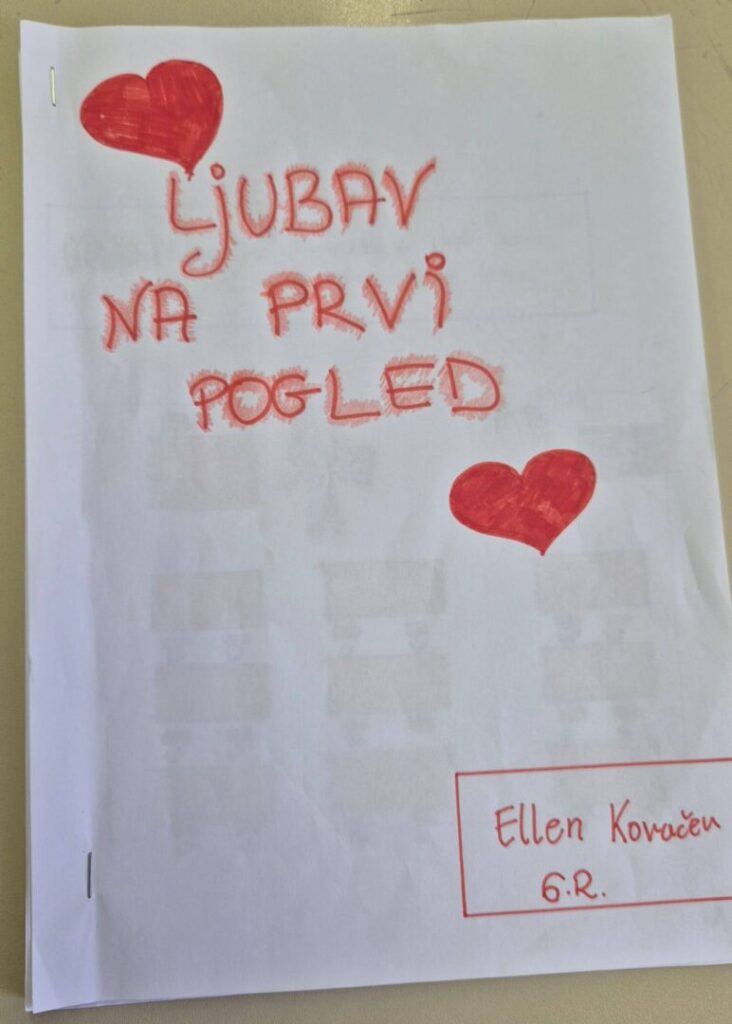 LjUBAV
NA PRVi
POGLED
Ellen Kovačev
6.R.